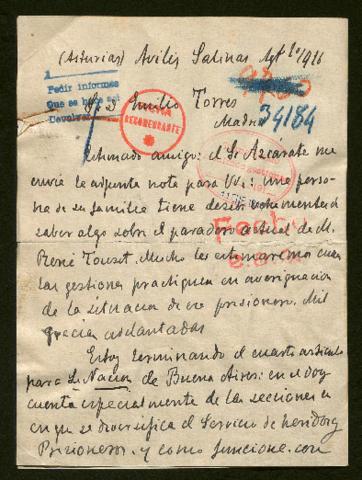 (Asturias) Avilés Salinas Agto 1º/1916
Pedir informes
Que se hace así
Devolver
Sr D Emilio Torres
Madrid
RECOMENDANTE
34184
Estimado amigo: el Sr Azcárate me
envía la adjunta nota para Vd: una perso-
na de su familia tiene deseo vehemente de
saber algo sobre el paradero actual de M.
René Touzet. Mucho les estimaremos cuan-
tas gestiones practiquen en averiguación
de la situación de ese prisionero. Mil
gracias adelantadas
Fecho
Estoy terminando el cuarto artículo
para La Nacion de Buenos Aires: en el doy
cuenta especialmente de las secciones en
que se diversifica el Servicio de heridos y
Prisioneros. y como funcione. con